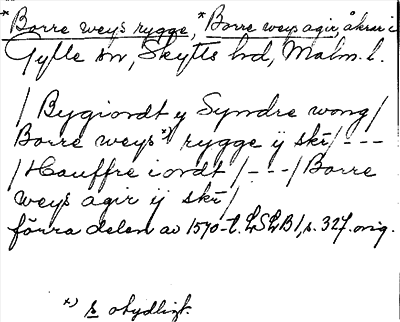 *Borre weys rygge, *Borre weys agir, åkrar i
Gylle sn, Skytts hd, Malm. l.
/ Bygiordt y Syndre wong /
Borre weys*) rygge ij skr / ---
/ Hauffre iordt / --- / Borre
weys agir ij skr /
förra delen av 1570-t. LSLB1, s. 327. orig.
*) s otydligt.